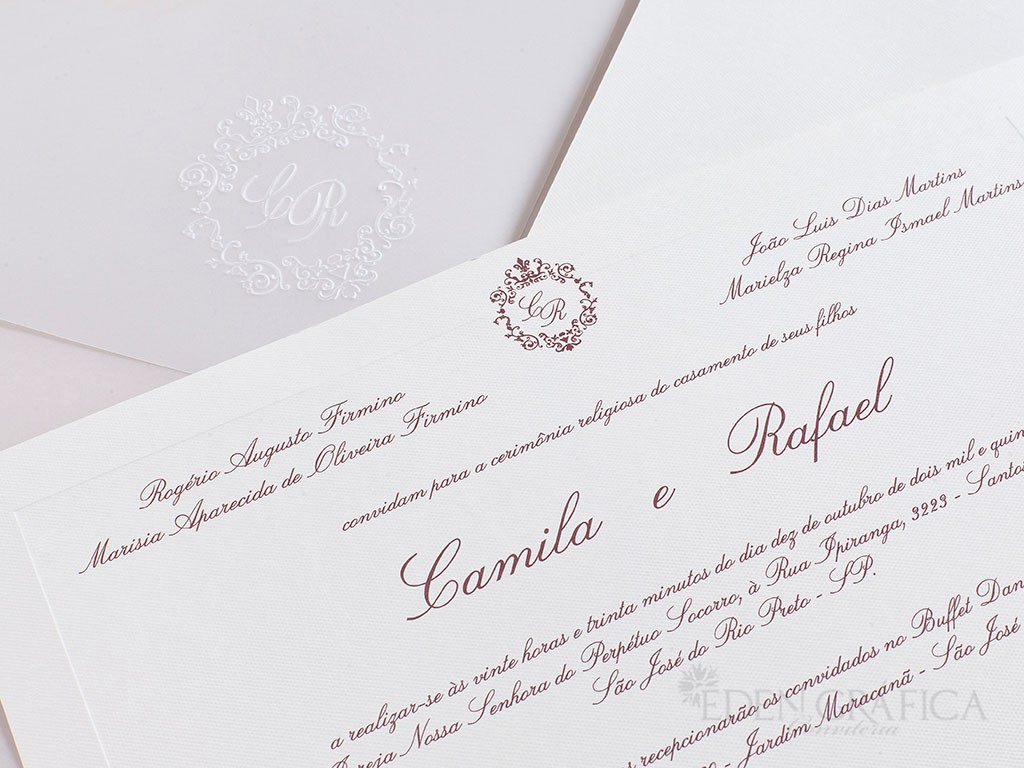 CR
CR
Rogério Augusto Firmino
Marisia Aparecida de Oliveira Firmino
João Luis Dias Martins
Marielza Regina Ismael Martins
convidam para a cerimônia religiosa do casamento de seus filhos
Camila e Rafael
a realizar-se às vinte horas e trinta minutos do dia dez de outubro de dois mil e
Nossa Senhora do Perpétuo Socorro, à Rua Ipiranga, 3223 - Santos
São José do Rio Preto - SP.
recepcionarão os convidados no Buffet
- Jardim Maracanã - São José
EDEN GRÁFICA